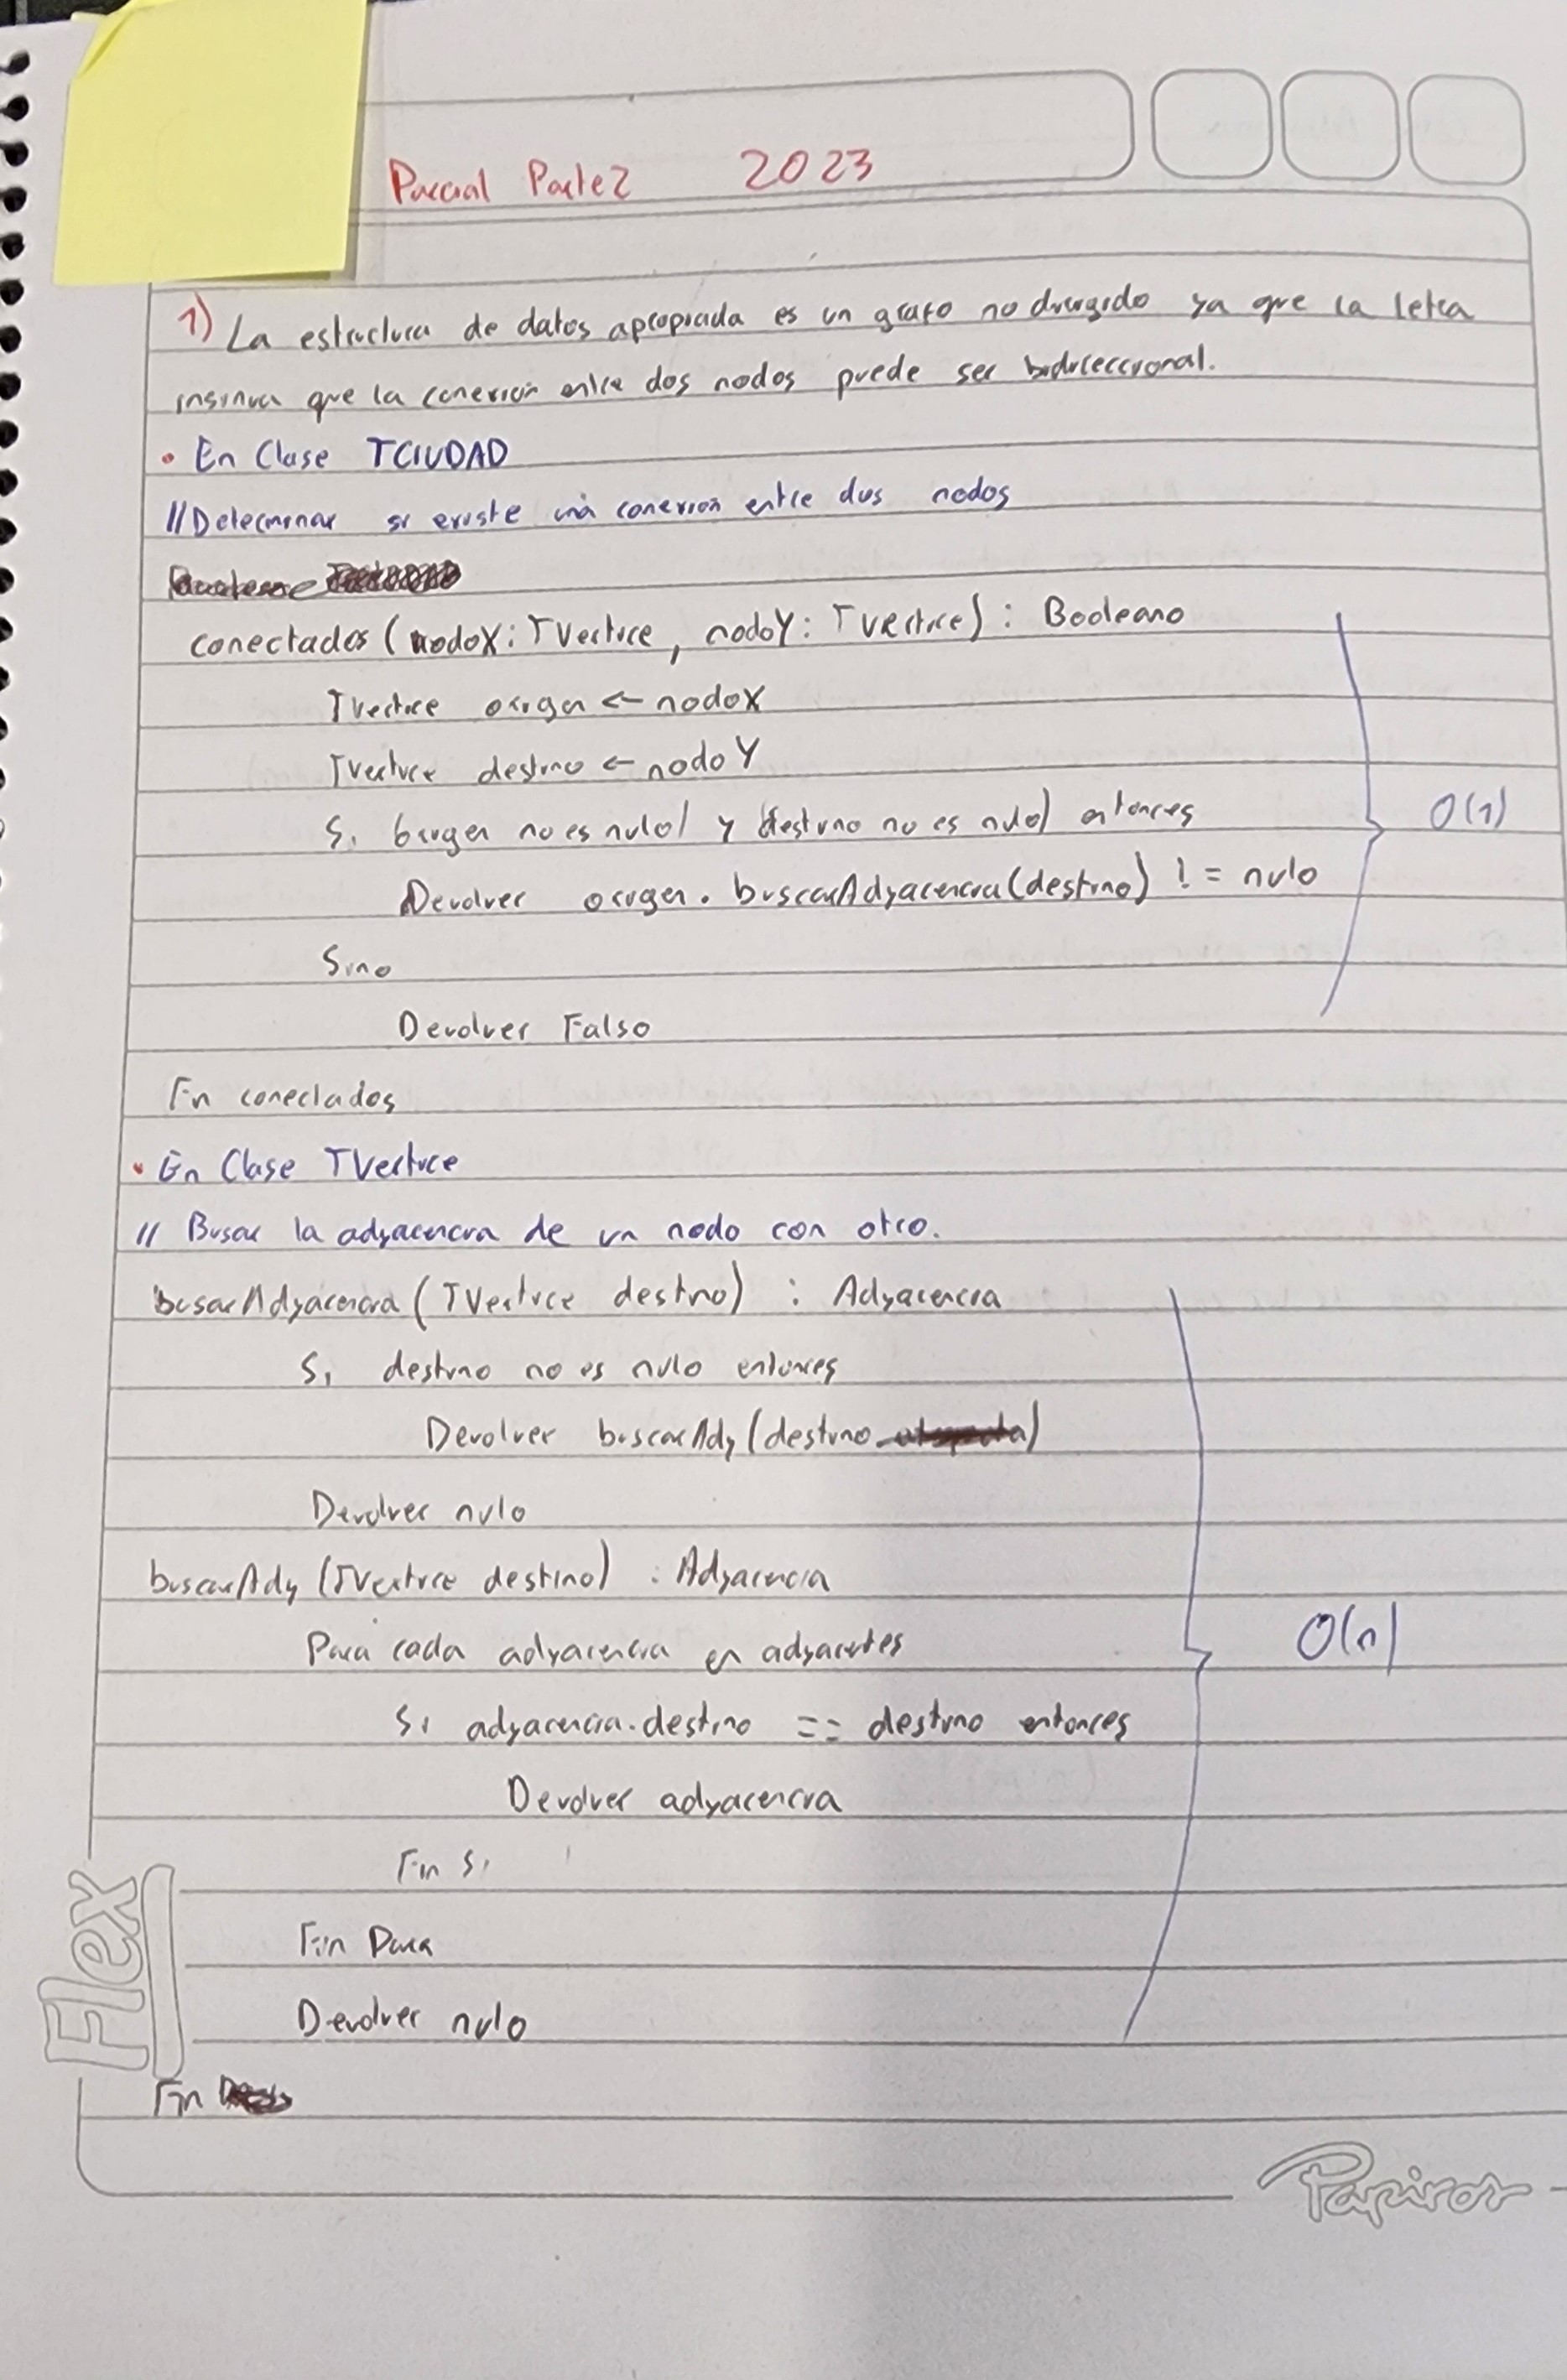 Parcial Parte 2 2023
1) La estructura de datos apropiada es un grafo no dirigido ya que la letra
insinua que la conexión entre dos nodos puede ser bidireccional.
• En Clase TCIUDAD
// Determinar si existe una conexion entre dos nodos
conectados (nodoX: TVertice, nodoY: TVertice) : Booleano
TVertice origen <- nodoX
TVertice destino <- nodo Y
Si (origen no es nulo) y (destino no es nulo) entonces
Devolver origen.buscarAdyacencia(destino) != nulo
O(1)
Sino
Devolver Falso
Fin conectados
• En Clase TVertice
// Busar la adyacencia de un nodo con otro.
busarAdyacencia (TVertice destino) : Adyacencia
Si destino no es nulo entonces
Devolver buscarAdy (destino)
Devolver nulo
buscarAdy (TVertice destino) : Adyacencia
Para cada adyacencia en adyacentes
O(n)
Si adyacencia.destino == destino entonces
Devolver adyacencia
Fin Si
Fin Para
Devolver nulo
Fin
Flex
Papiros